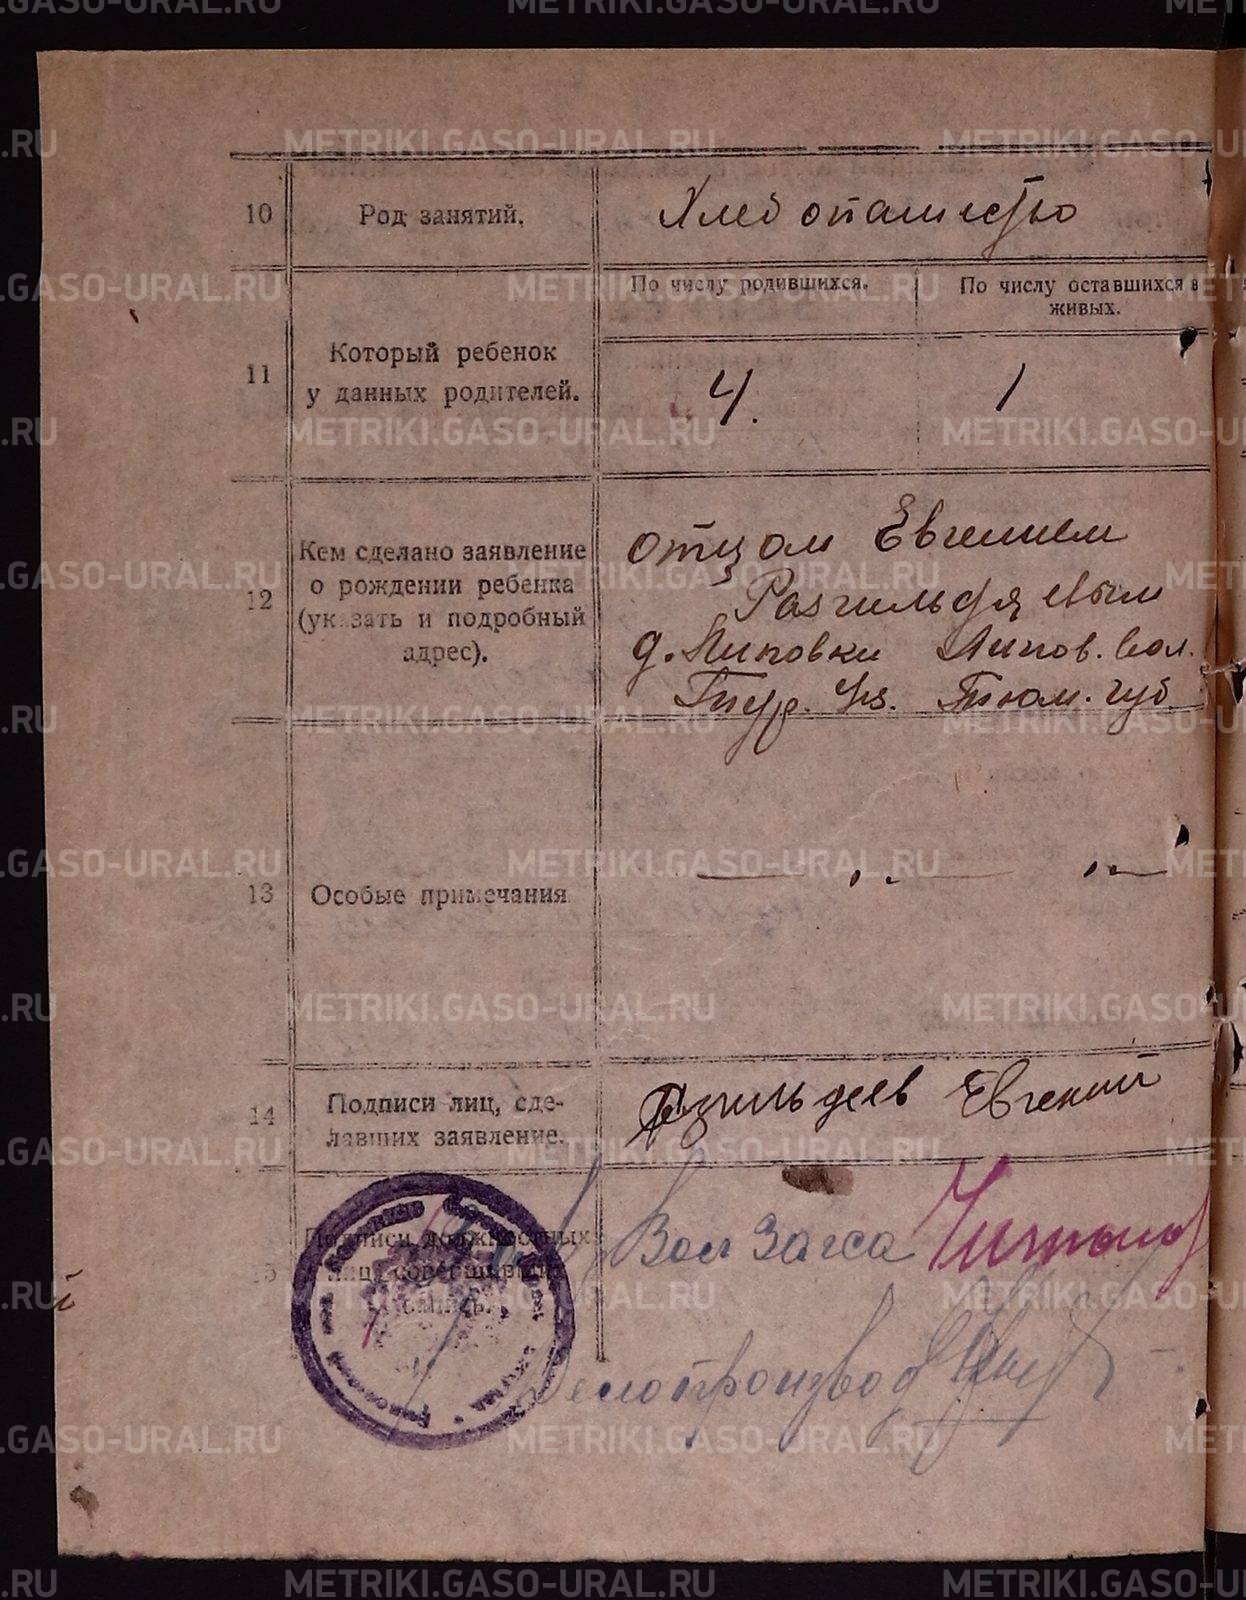 10
Род занятий.
Хлебопашество
11
Который ребенок
у данных родителей.
По числу родившихся.
По числу оставшихся в
живых.
4.
1
12
Кем сделано заявление
о рождении ребенка
(указать и подробный
адрес).
отцом Евгением
Разгильдяевым
д. Липовки Липов. вол.
Тюр. Уз. Тюм. губ.
13
Особые примечания.
14
Подписи лиц, сде-
лавших заявление.
Разгильдеев Евгений
15
Подписи должностных
лиц, совершивших
запись.
Зав. Вол Загса
Делопроизвод
METRIKI.GASO-URAL.RU